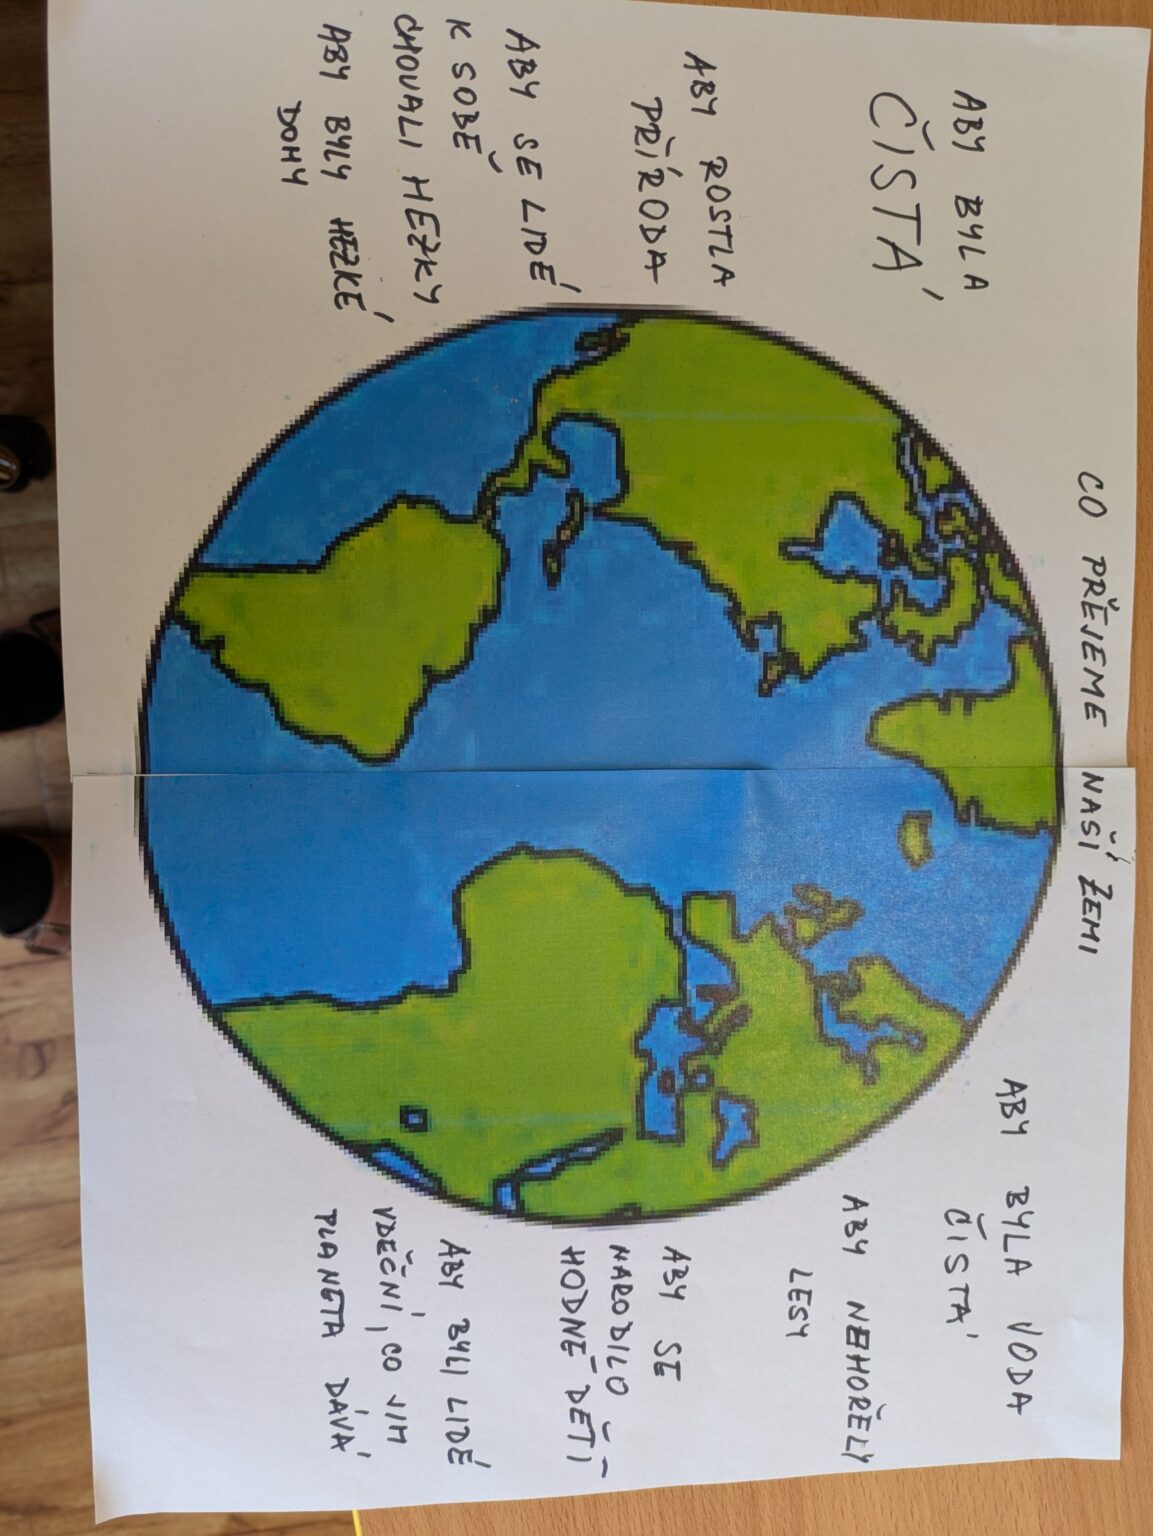 CO PŘEJEME NAŠÍ ZEMI
ABY BYLA
ČISTÁ
ABY ROSTLA
PŘÍRODA
ABY SE LIDÉ
K SOBĚ
CHOVALI HEZKY
ABY BYLY HEZKÉ
DOMY
ABY BYLA VODA
ČISTÁ
ABY NEHOŘELY
LESY
ABY SE
NARODILO
HODNĚ DĚTÍ
ABY BYLI LIDÉ
VDĚČNÍ, CO JIM
PLANETA DÁVÁ